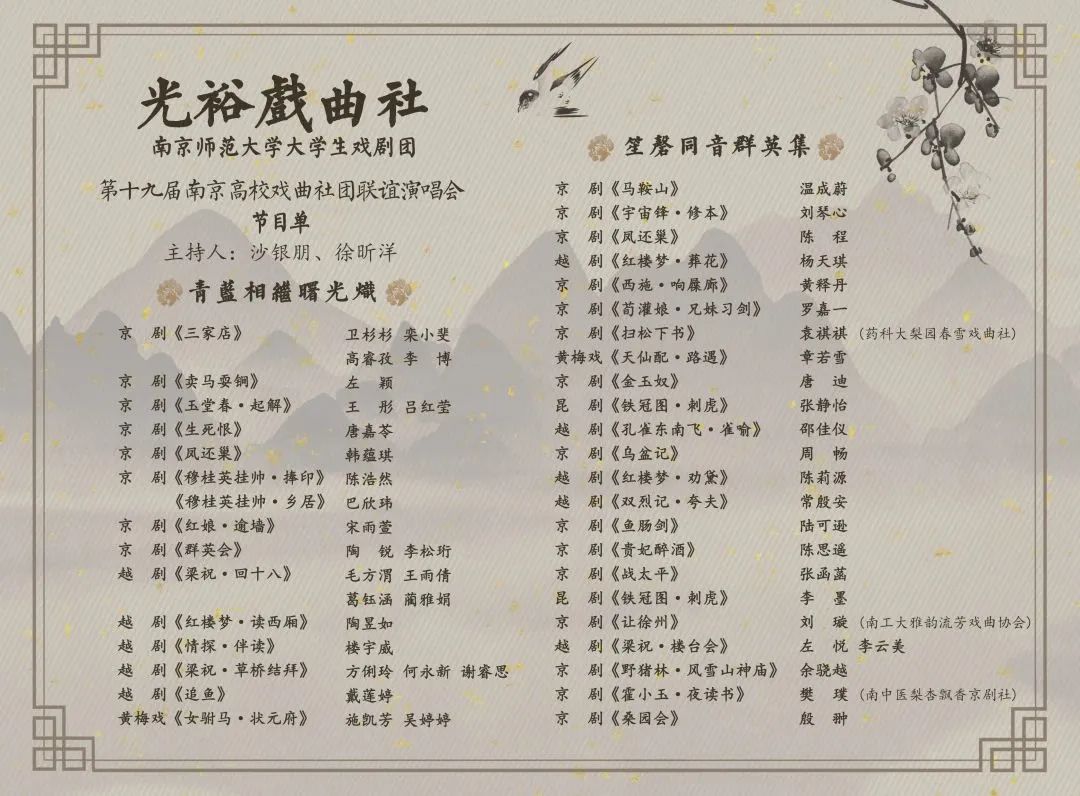 光裕戲曲社
南京师范大学大学生戏剧团
第十九届南京高校戏曲社团联谊演唱会
节目单
主持人：沙银朋、徐昕洋
青藍相繼曙光熾
京 剧《三家店》 卫杉杉 栾小斐
高睿孜 李 博
京 剧《卖马耍锏》 左 颖
京 剧《玉堂春·起解》 王 彤 吕红莹
京 剧《生死恨》 唐嘉苓
京 剧《凤还巢》 韩蕴琪
京 剧《穆桂英挂帅·捧印》 陈浩然
《穆桂英挂帅·乡居》 巴欣玮
京 剧《红娘·逾墙》 宋雨萱
京 剧《群英会》 陶 锐 李松珩
越 剧《梁祝·回十八》 毛方渭 王雨倩
葛钰涵 蔺雅娟
越 剧《红楼梦·读西厢》 陶昱如
越 剧《情探·伴读》 楼宇威
越 剧《梁祝·草桥结拜》 方俐玲 何永新 谢睿思
越 剧《追鱼》 戴莲婷
黄梅戏《女驸马·状元府》 施凯芳 吴婷婷
笙磬同音群英集
京 剧《马鞍山》 温成蔚
京 剧《宇宙锋·修本》 刘琴心
京 剧《凤还巢》 陈 程
越 剧《红楼梦·葬花》 杨天琪
京 剧《西施·响屧廊》 黄释丹
京 剧《荀灌娘·兄妹习剑》 罗嘉一
京 剧《扫松下书》 袁祺祺（药科大梨园春雪戏曲社）
黄梅戏《天仙配·路遇》 章若雪
京 剧《金玉奴》 唐 迪
昆 剧《铁冠图·刺虎》 张静怡
越 剧《孔雀东南飞·雀喻》 邵佳仪
京 剧《乌盆记》 周 畅
越 剧《红楼梦·劝黛》 陈莉源
越 剧《双烈记·夸夫》 常殷安
京 剧《鱼肠剑》 陆可逊
京 剧《贵妃醉酒》 陈思遥
京 剧《战太平》 张函菡
昆 剧《铁冠图·刺虎》 李 墨
京 剧《让徐州》 刘 璇（南工大雅韵流芳戏曲协会）
越 剧《梁祝·楼台会》 左 悦 李云美
京 剧《野猪林·风雪山神庙》 余骁越
京 剧《霍小玉·夜读书》 樊 璞（南中医梨杏飘香京剧社）
京 剧《桑园会》 殷 翀